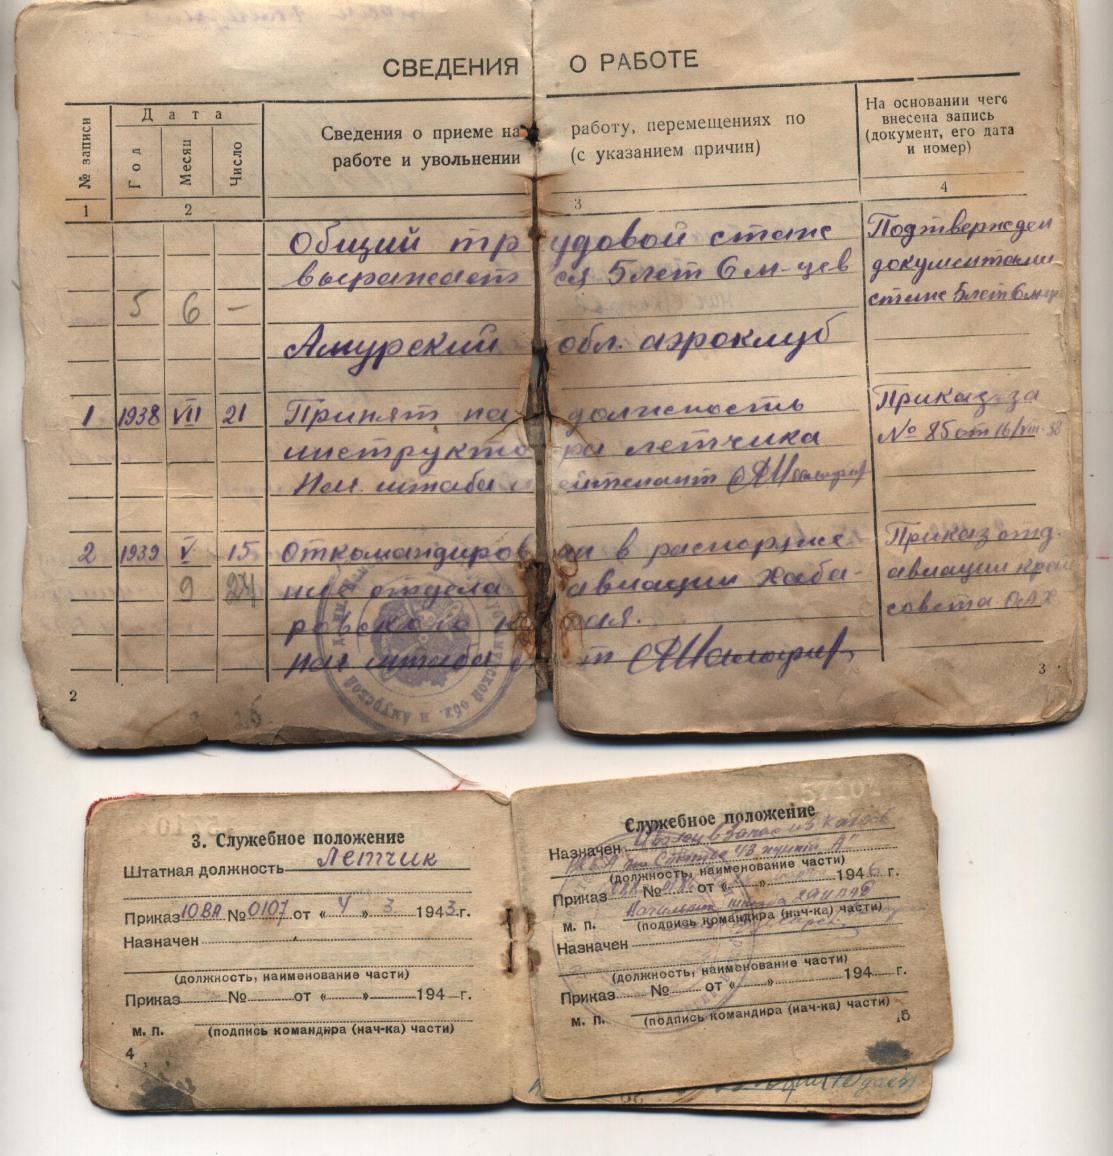 СВЕДЕНИЯ О РАБОТЕ
№ записи
Дата
Год
Месяц
Число
Сведения о приеме на работу, перемещениях по
работе и увольнении (с указанием причин)
На основании чего
внесена запись
(документ, его дата
и номер)
1
2
3
4
Общий трудовой стаж
Подтвержден
выражается 5 лет 6 м-цев
документами
5 6 —
стаж 5 лет 6 м-цев
Амурский обл. аэроклуб
1 1938 VII 21 Принят на должность
Приказ за
инструктора летчика
№ 85 от 16/VIII-38
Нач. штаба
2 1939 V 15 Откомандирован в распоряже-
Приказ отд.
9 24 ние отдела авиации Хаба-
авиации край
ровского края.
совета ОАХ
Нач штаба
2
3
3. Служебное положение
Штатная должность Летчик
Приказ 10 ВА № 0107 от « 4 » 3 1943 г.
Назначен
(должность, наименование части)
Приказ № от « » 194 г.
м. п. (подпись командира (нач-ка) части)
4
Служебное положение
Назначен в запас из кадров
(должность, наименование части)
Приказ № от « » 1946 г.
Начальник штаба
м. п. (подпись командира (нач-ка) части)
Назначен
(должность, наименование части)
Приказ № от « » 194 г.
м. п. (подпись командира (нач-ка) части)
5